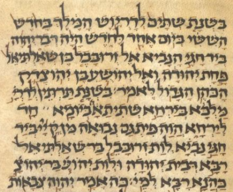 בשנת שתים לדריוש המלך בחדש
הששי ביום אחד לחדש היה דבר יהוה
ביד חגי הנביא אל זרובבל בן שאלתיאל
פחת יהודה ואל יהושע בן יהוצדק
הכהן הגדול לאמר: בשנת תרתין
מלכא בירחא שתיתאה ביומא חד
לירחא הוה פתגם נבואה מן קדם ביד
חגי נביא לות זרובבל בר שאלתיאל
רבא דבית יהודה ולות יהושע בר יהוצ
כהנא רבא למי: כה אמר יהוה צבאות